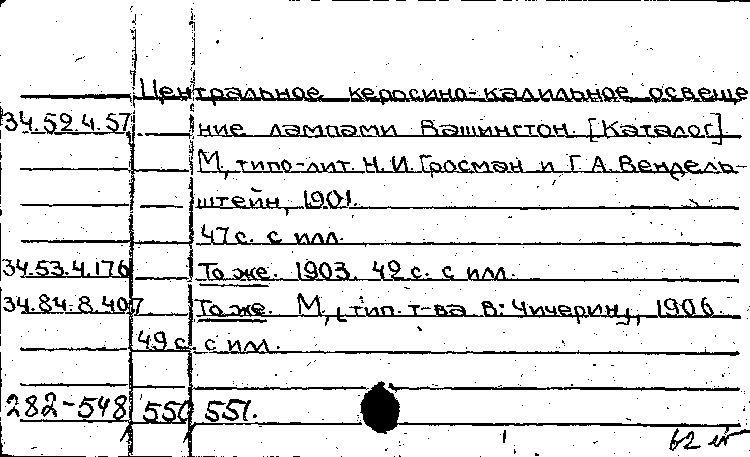 Центральное керосино-калильное освеще
34.52.4.57 ние лампами Вашингтон. [Каталог]
М, типо-лит. Н. И. Гросман и Г. А. Вендель-
штейн, 1901.
47 с. с илл.
34.53.4.176 То же. 1903. 42 с. с илл.
34.84.8.407 То же. М, [тип. т-ва В. Чичерин], 1906.
49 с. с илл.
282-548 550 551.
62